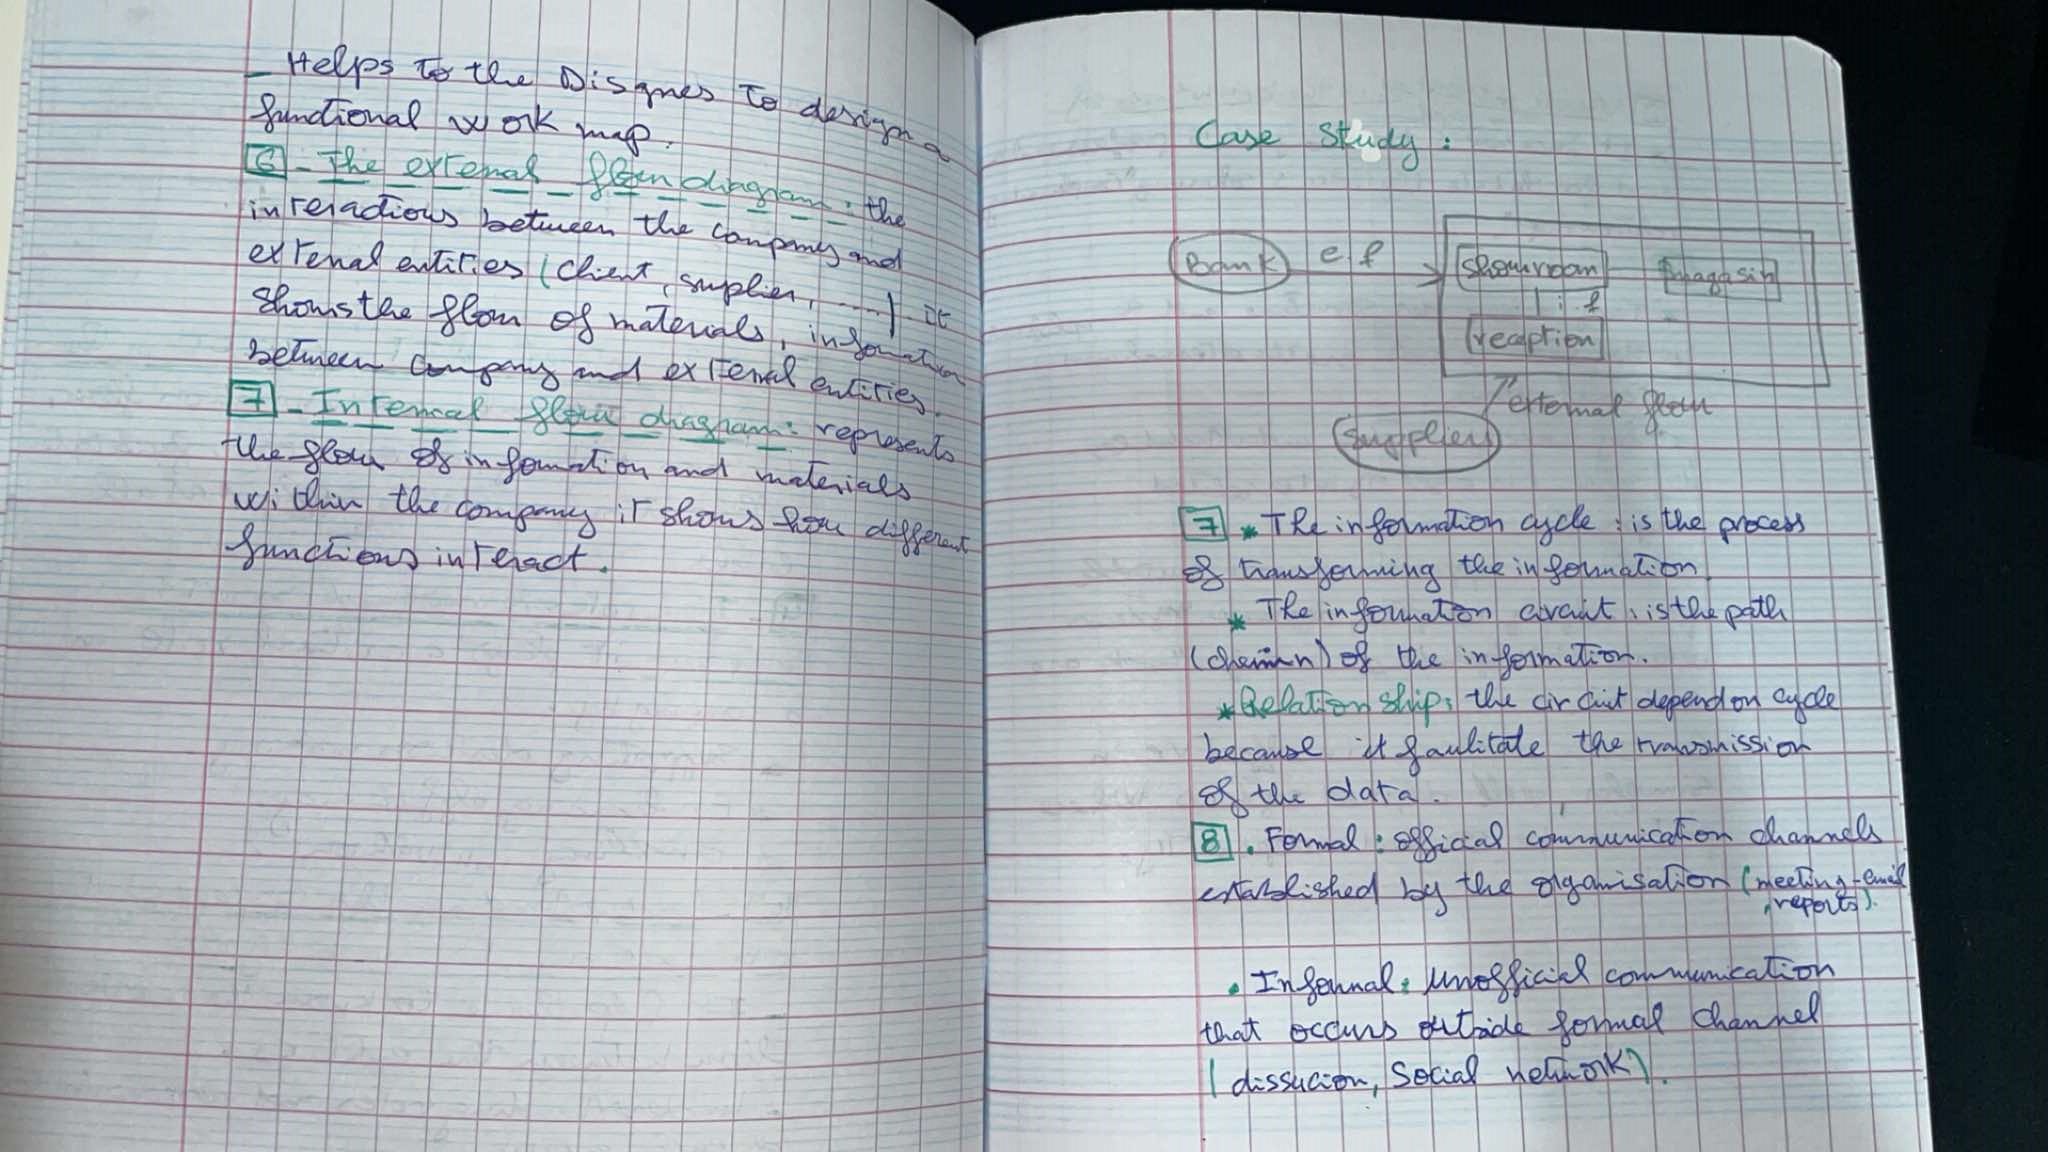 _ Helps to the Disgnes to design a
functional work map.
6 - The external flow diagram : the
interactions between the company and
external entities (client, supplier, ....) . It
shows the flow of materials, information
between company and external entities.
7 - Internal flow diagram : represents
the flow of information and materials
within the company it shows how different
functions interact.
Case Study :
Bank e f showroom magasin
i f
reception
external flow
suppliers
7 * The information cycle : is the process
of transforming the information
* The information circuit : is the path
(chemin) of the information.
* Relation ship : the circuit depend on cycle
because it faulitate the transmission
of the data.
8 . Formal : official communication channels
established by the organisation (meeting - email
, reports).
. Informal : unofficial communication
that occurs outside formal channel
( dissucion, social network).